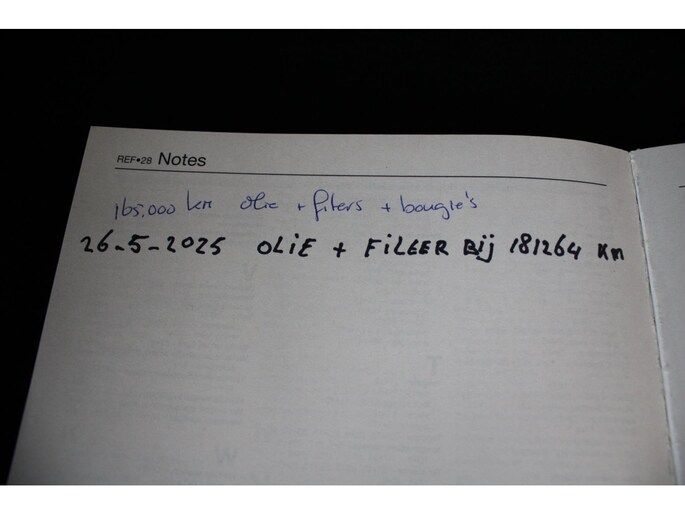 REF•28 Notes
165.000 km olie + filters + bougie's
26-5-2025 OLIE + FILTER BIJ 181264 Km